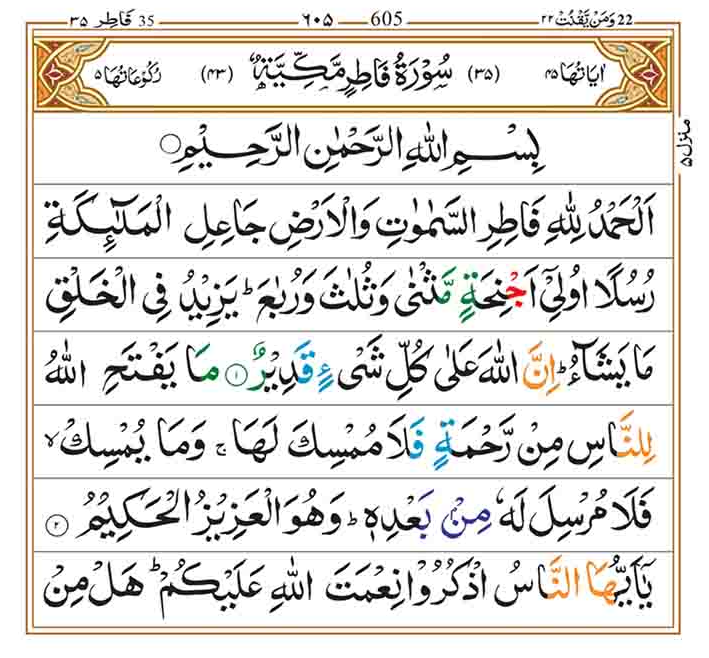 ۳۵ فَاطِر 35 ۶۰۵ 605 ۲۲ وَمَنْ يَّقْنُتْ 22
اٰيَاتُهَا ۴۵ (۳۵) سُوْرَةُ فَاطِرٍ مَّكِّيَّةٌ (۴۳) رُكُوْعَاتُهَا ۵
بِسْمِ اللّٰهِ الرَّحْمٰنِ الرَّحِيْمِ
اَلْحَمْدُ لِلّٰهِ فَاطِرِ السَّمٰوٰتِ وَالْاَرْضِ جَاعِلِ الْمَلٰٓئِكَةِ
رُسُلًا اُولِيْۤ اَجْنِحَةٍ مَّثْنٰى وَثُلٰثَ وَرُبٰعَ ؕ يَزِيْدُ فِى الْخَلْقِ
مَا يَشَآءُ ؕ اِنَّ اللّٰهَ عَلٰى كُلِّ شَىْءٍ قَدِيْرٌ ۱ مَا يَفْتَحِ اللّٰهُ
لِلنَّاسِ مِنْ رَّحْمَةٍ فَلَا مُمْسِكَ لَهَا ۚ وَمَا يُمْسِكْ ۙ
فَلَا مُرْسِلَ لَهٗ مِنْۢ بَعْدِهٖ ؕ وَهُوَ الْعَزِيْزُ الْحَكِيْمُ ۲
يٰۤاَيُّهَا النَّاسُ اذْكُرُوْا نِعْمَتَ اللّٰهِ عَلَيْكُمْ ؕ هَلْ مِنْ
منزل ۵